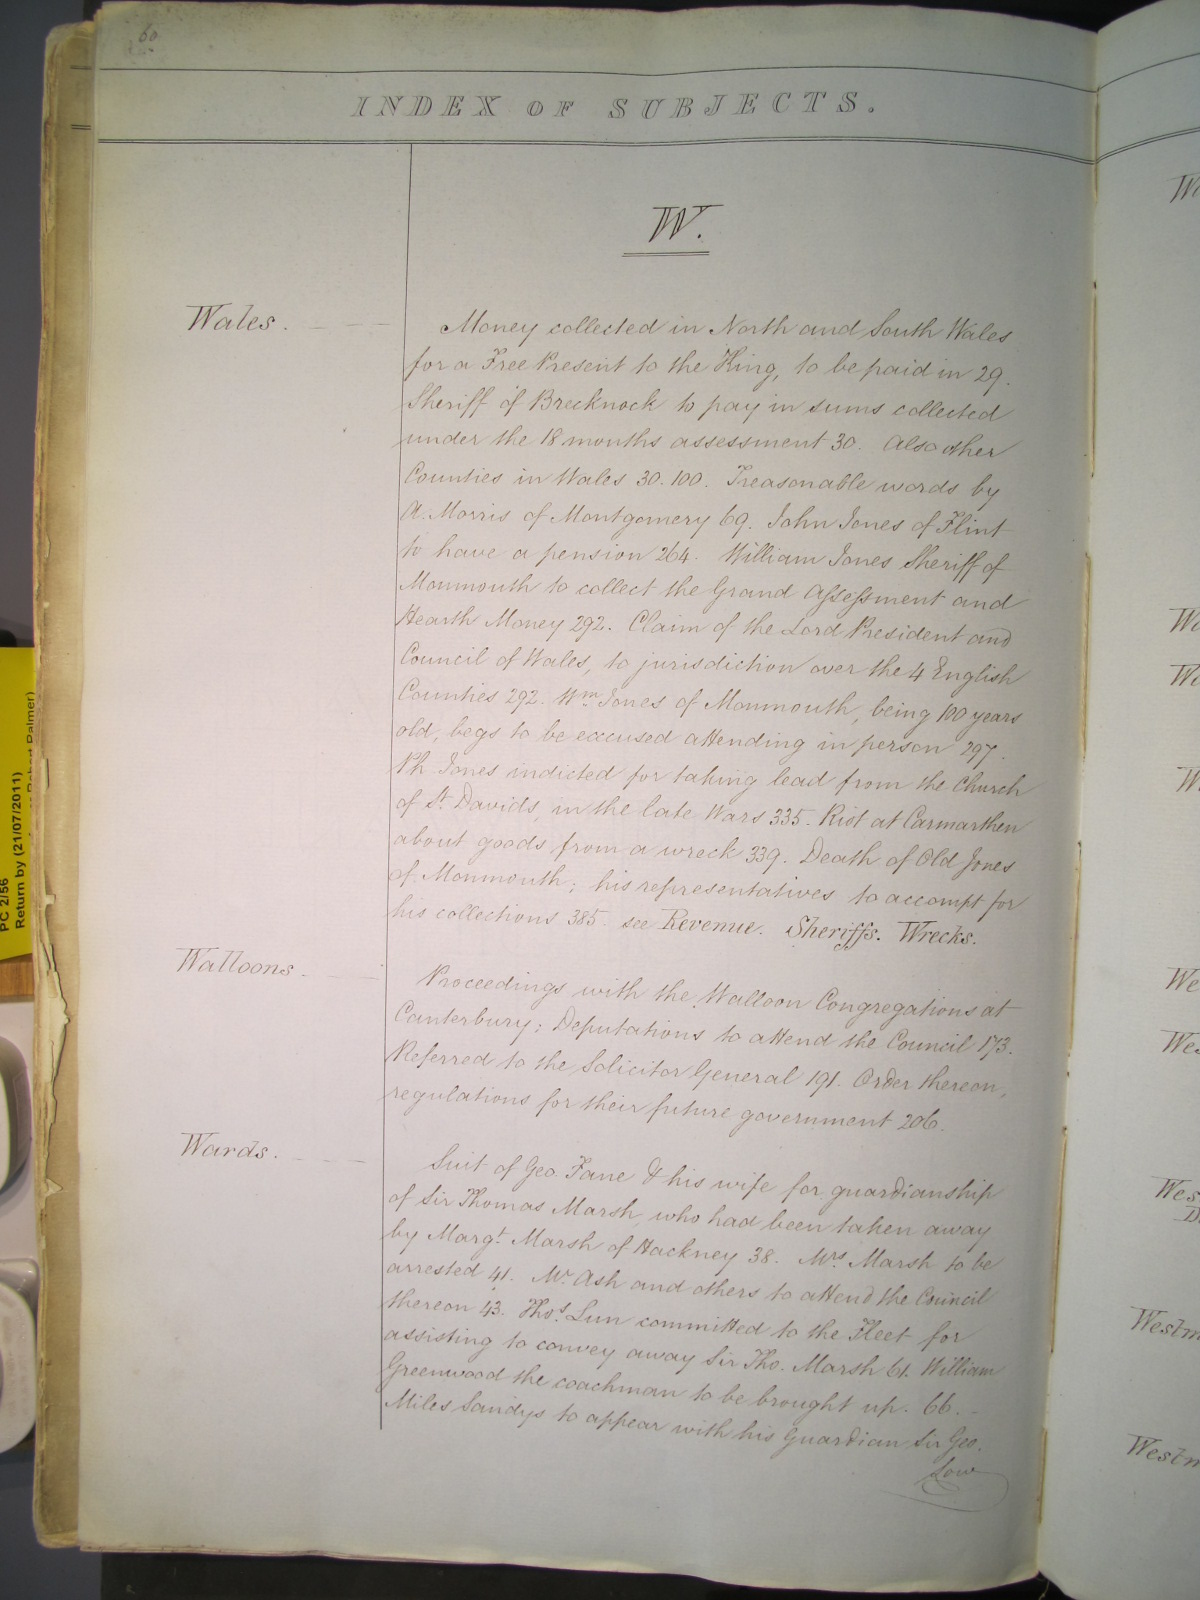 60
INDEX OF SUBJECTS.
W.
Wales.
Money collected in North and South Wales
for a Free Present to the King, to be paid in 29.
Sheriff of Brecknock to pay in sums collected
under the 18 months assessment 30. Also other
Counties in Wales 30. 100. Treasonable words by
A. Morris of Montgomery 69. John Jones of Flint
to have a pension 264. William Jones Sheriff of
Monmouth to collect the Grand Assessment and
Hearth Money 292. Claim of the Lord President and
Council of Wales, to jurisdiction over the 4 English
Counties 292. Wm Jones of Monmouth, being 100 years
old, begs to be excused attending in person 297.
Ph Jones indicted for taking lead from the Church
of St Davids, in the late Wars 335. Riot at Carmarthen
about goods from a wreck 339. Death of Old Jones
of Monmouth; his representatives to accompt for
his collections 385. see Revenue. Sheriffs. Wrecks.
Walloons.
Proceedings with the Walloon Congregations at
Canterbury; Deputations to attend the Council 173.
Referred to the Solicitor General 191. Order thereon,
regulations for their future government 206.
Wards.
Suit of Geo. Fane & his wife for guardianship
of Sir Thomas Marsh, who had been taken away
by Margt Marsh of Hackney 38. Mrs Marsh to be
arrested 41. Mr Ash and others to attend the Council
thereon 43. Thos. Lun committed to the Fleet for
assisting to convey away Sir Tho. Marsh 61. William
Greenwood the coachman to be brought up. 66.
Miles Sandys to appear with his Guardian Sir Geo.
Low
PC 2/56
Return by (21/07/2011)
Robert Palmer)
We
Wes
Wes
Westm
Westm